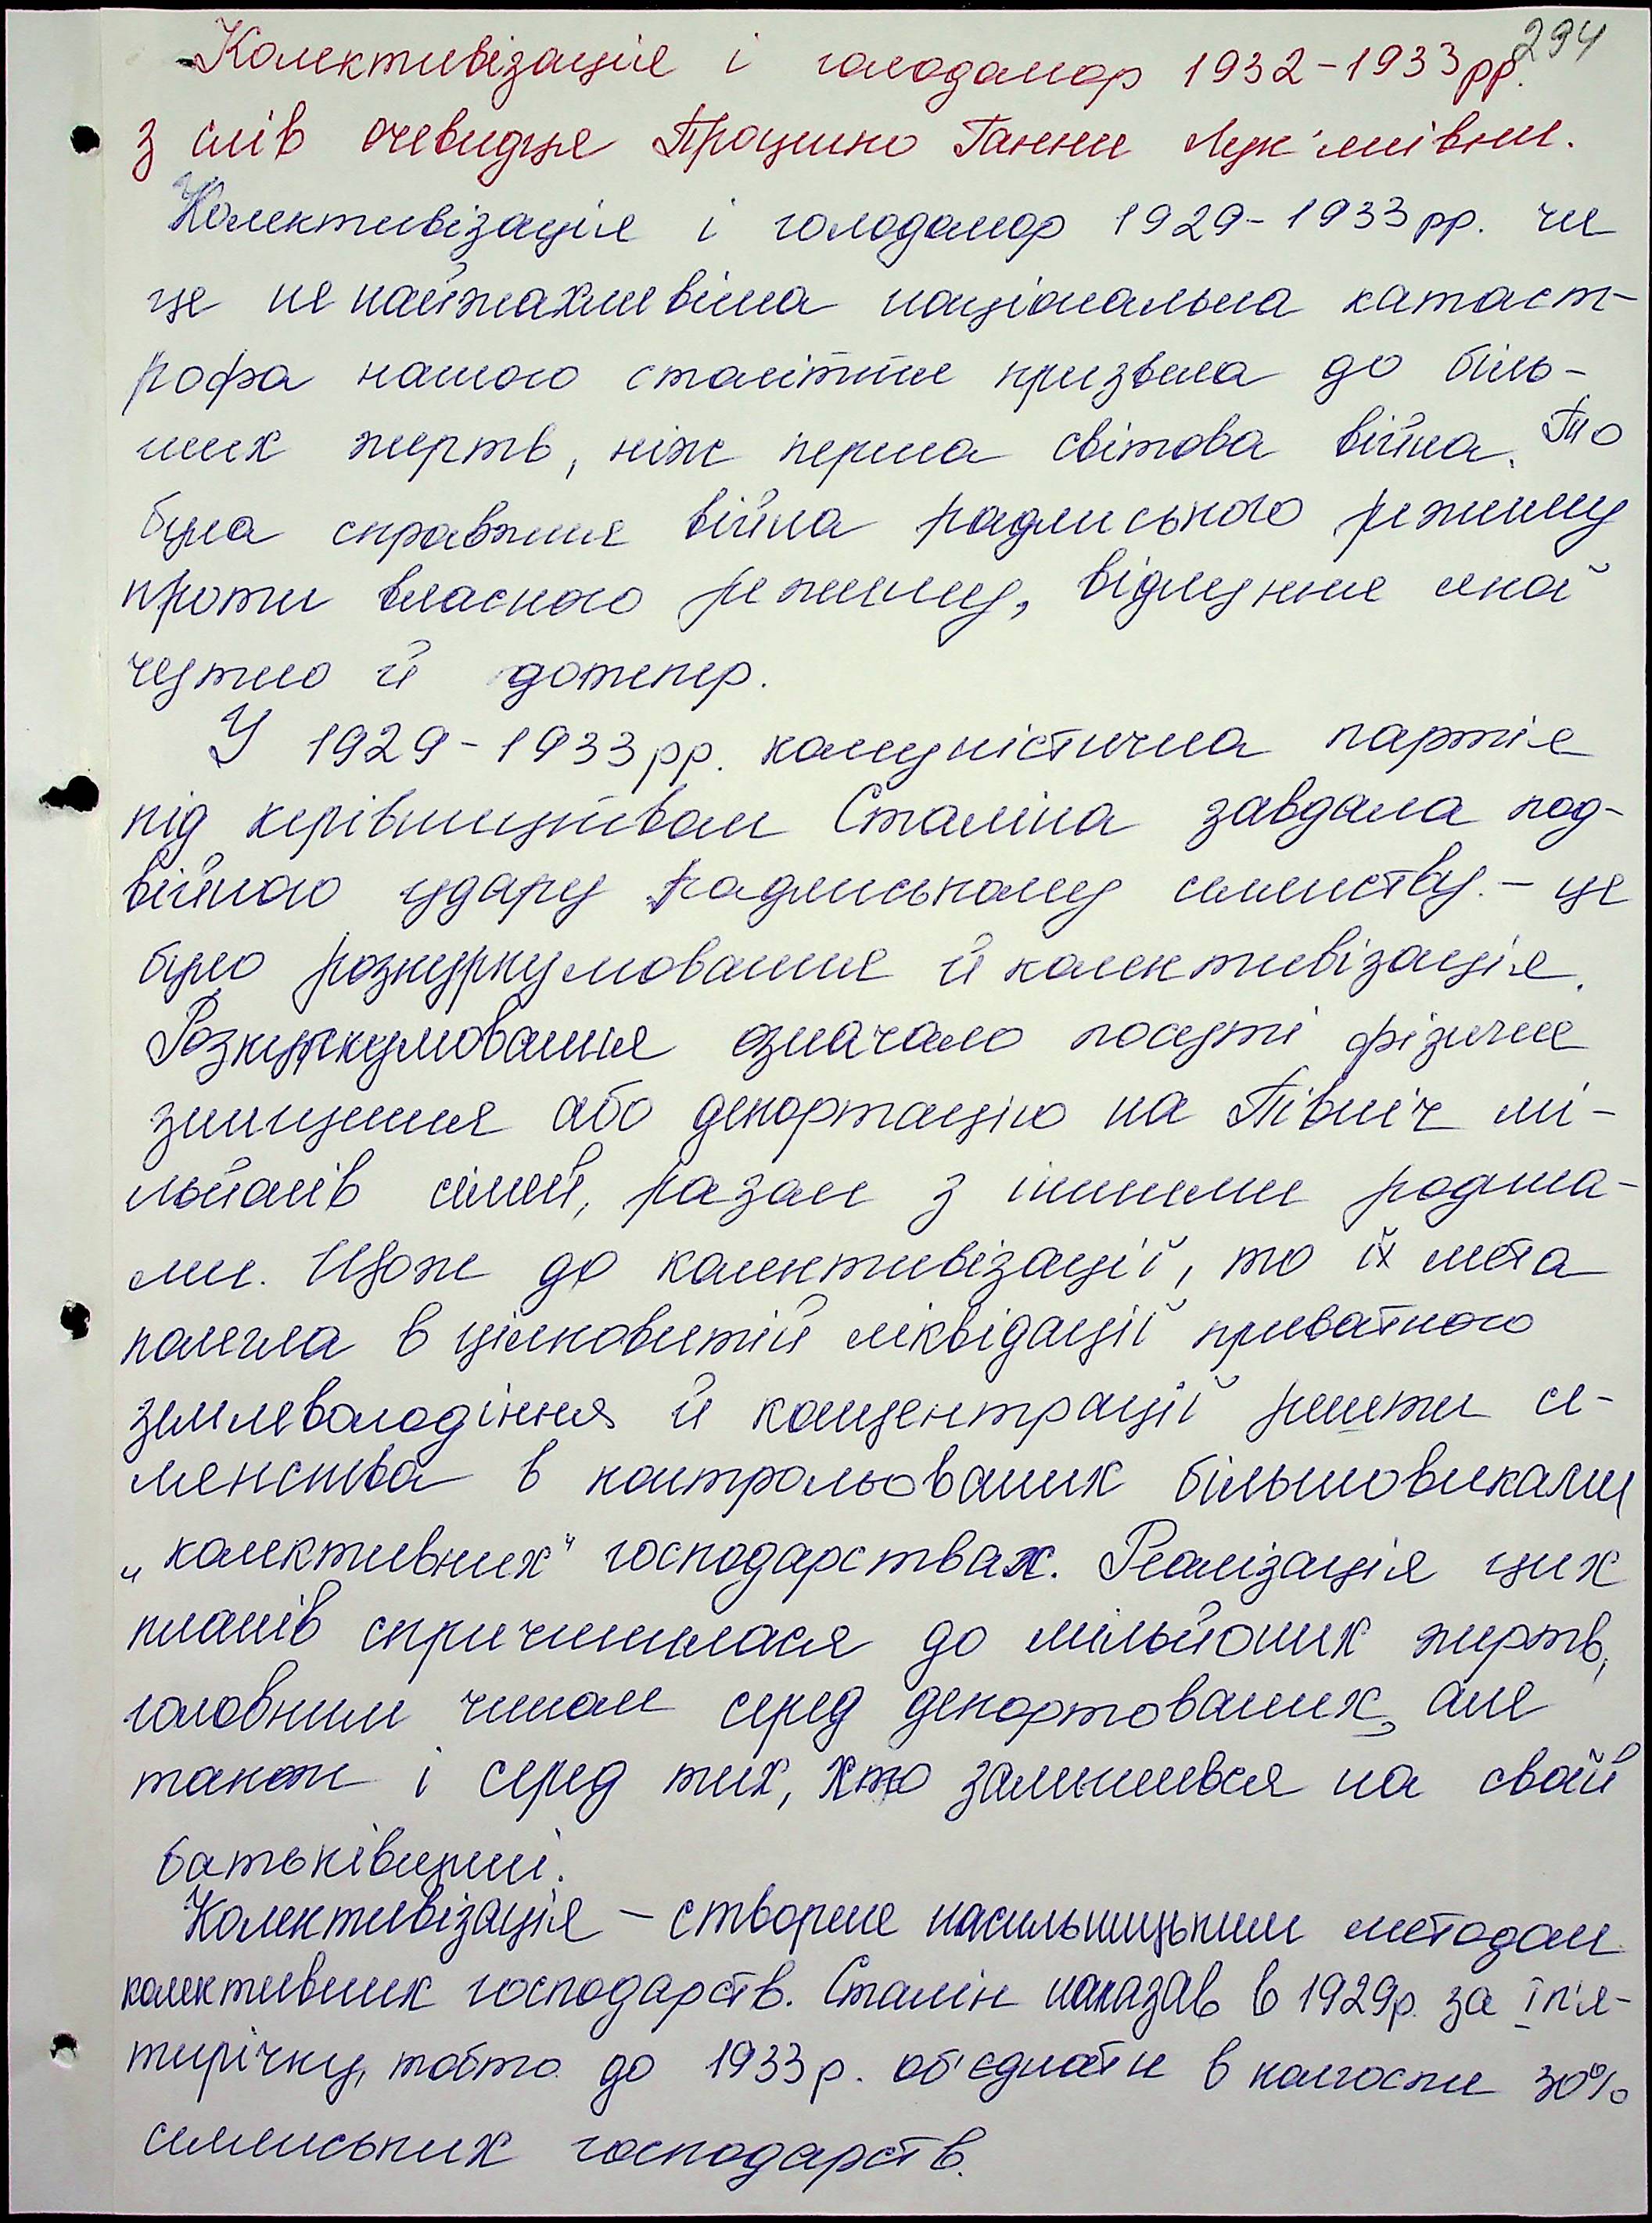 294
Колективізація і голодомор 1932-1933 рр.
з слів очевидця Процишко Ганни Лук'янівни.
Колективізація і голодомор 1929-1933 рр. чи
це не найжахливіша національна катаст-
рофа нашого століття призвела до біль-
ших жертв, ніж перша світова війна. То
була справжня війна радянського режиму
проти власного режиму, відлуння якої
чутно й дотепер.
У 1929-1933 рр. комуністична партія
під керівництвом Сталіна завдала под-
війного удару радянському селянству. - це
було розкуркулювання й колективізація.
Розкуркулювання означало посуті фізичне
знищення або депортацію на Північ мі-
льйонів сімей, разом з іншими родина-
ми. Щож до колективізації, то їх мета
полягла в цілковитій ліквідації приватного
землеволодіння й концентрації решти се-
лянства в контрольованих більшовиками
„колективних" господарствах. Реалізація цих
планів спричинилася до мільйоних жертв,
головним чином серед депортованих, але
також і серед тих, хто залишився на своїй
батьківщині.
Колективізація - створене насильницьким методом
колективних господарств. Сталін наказав в 1929р. за І п'я-
тирічку, тобто до 1933 р. об'єднати в колгоспи 30%
селянських господарств.